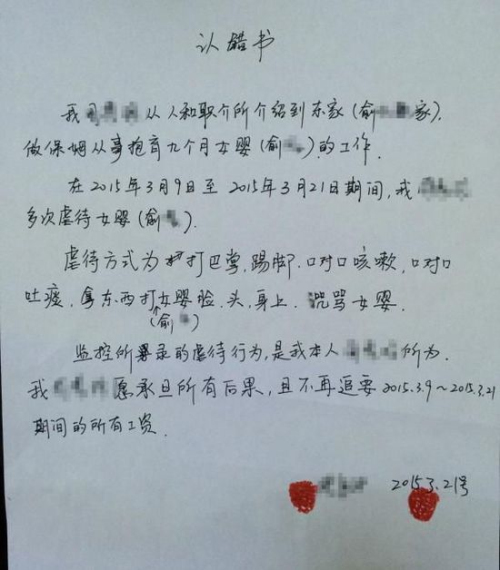 认错书
我 从人和职介所介绍到东家(俞 家).
做保姆从事抱育九个月女婴(俞 ).的工作.
在2015年3月9日至2015年3月21日期间,我
多次虐待女婴(俞 ).
虐待方式为 打巴掌,踢脚.口对口咳嗽.口对口
吐痰.拿东西打女婴脸.头,身上.咒骂女婴.
(俞 )
监控所录的虐待行为,是我本人 所为.
我 愿承担所有后果,且不再追要2015.3.9~2015.3.21
期间的所有工资.
2015.3.21号